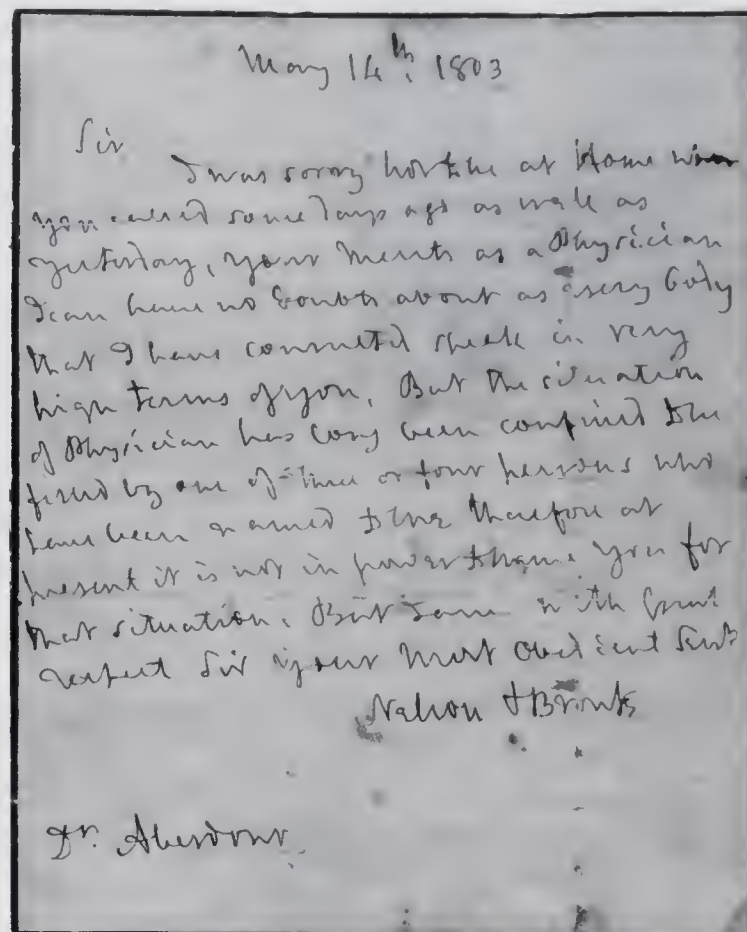 May 14th. 1803
Sir
I was sorry not to be at Home when
you called some days ago as well as
yesterday, your merits as a Physician
I can have no doubts about as every body
that I have consulted speak in very
high terms of you, But the situation
of Physician has long been confined to be
filled by one of three or four persons who
have been named to me therefore at
present it is not in power to name you for
that situation. But I am with great
respect Sir your most obedient Servt
Nelson & Bronte
Dr. Aberdour